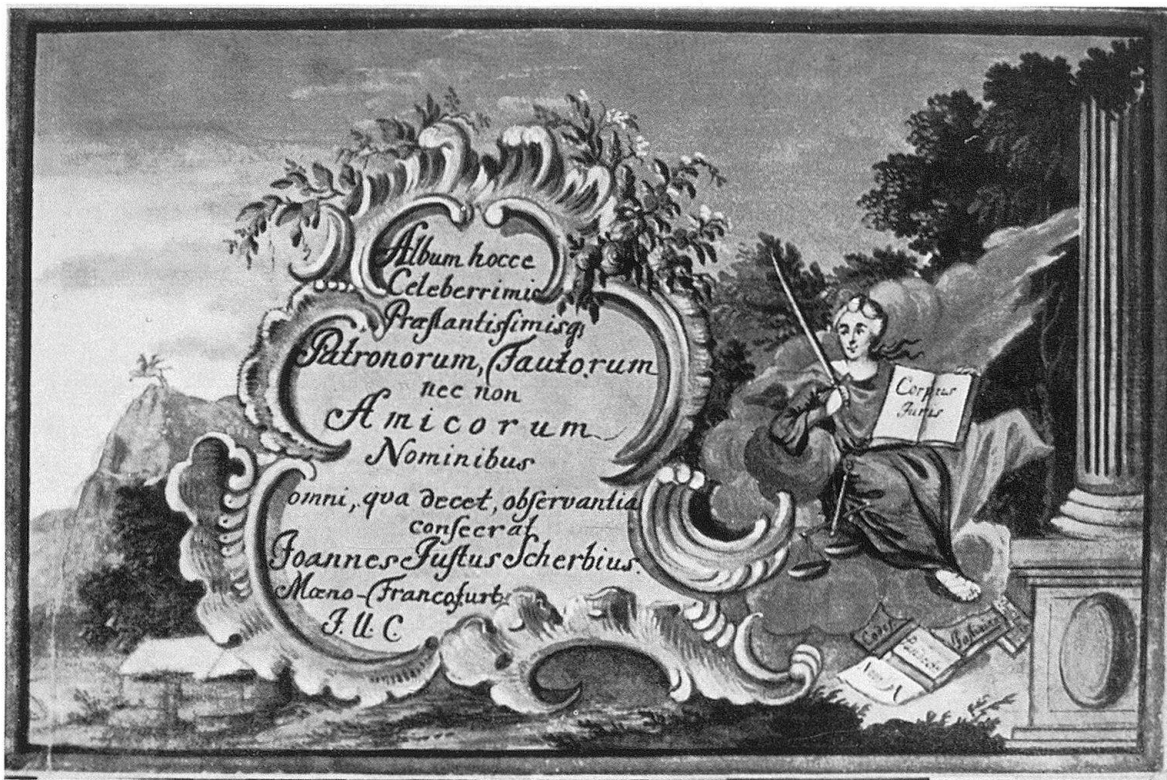 Album hocce
Celeberrimis
Præstantissimisq;
Patronorum, Fautorum
nec non
Amicorum
Nominibus
omni, qva decet, observantia
consecrat
Joannes Justus Scherbius.
Mœno-Francofurt.
J. U. C
Corpus
Juris